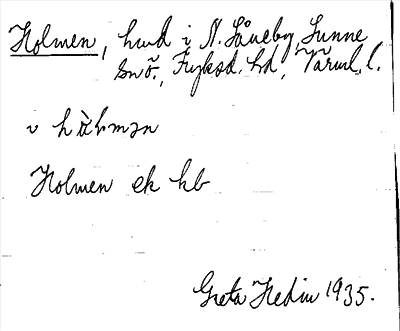 Holmen, hmd i N. Låneby, Sunne
snö., Fryksd. hd, Värml. l.
v hòlmən
Holmen ek kb
Greta Hedin 1935.